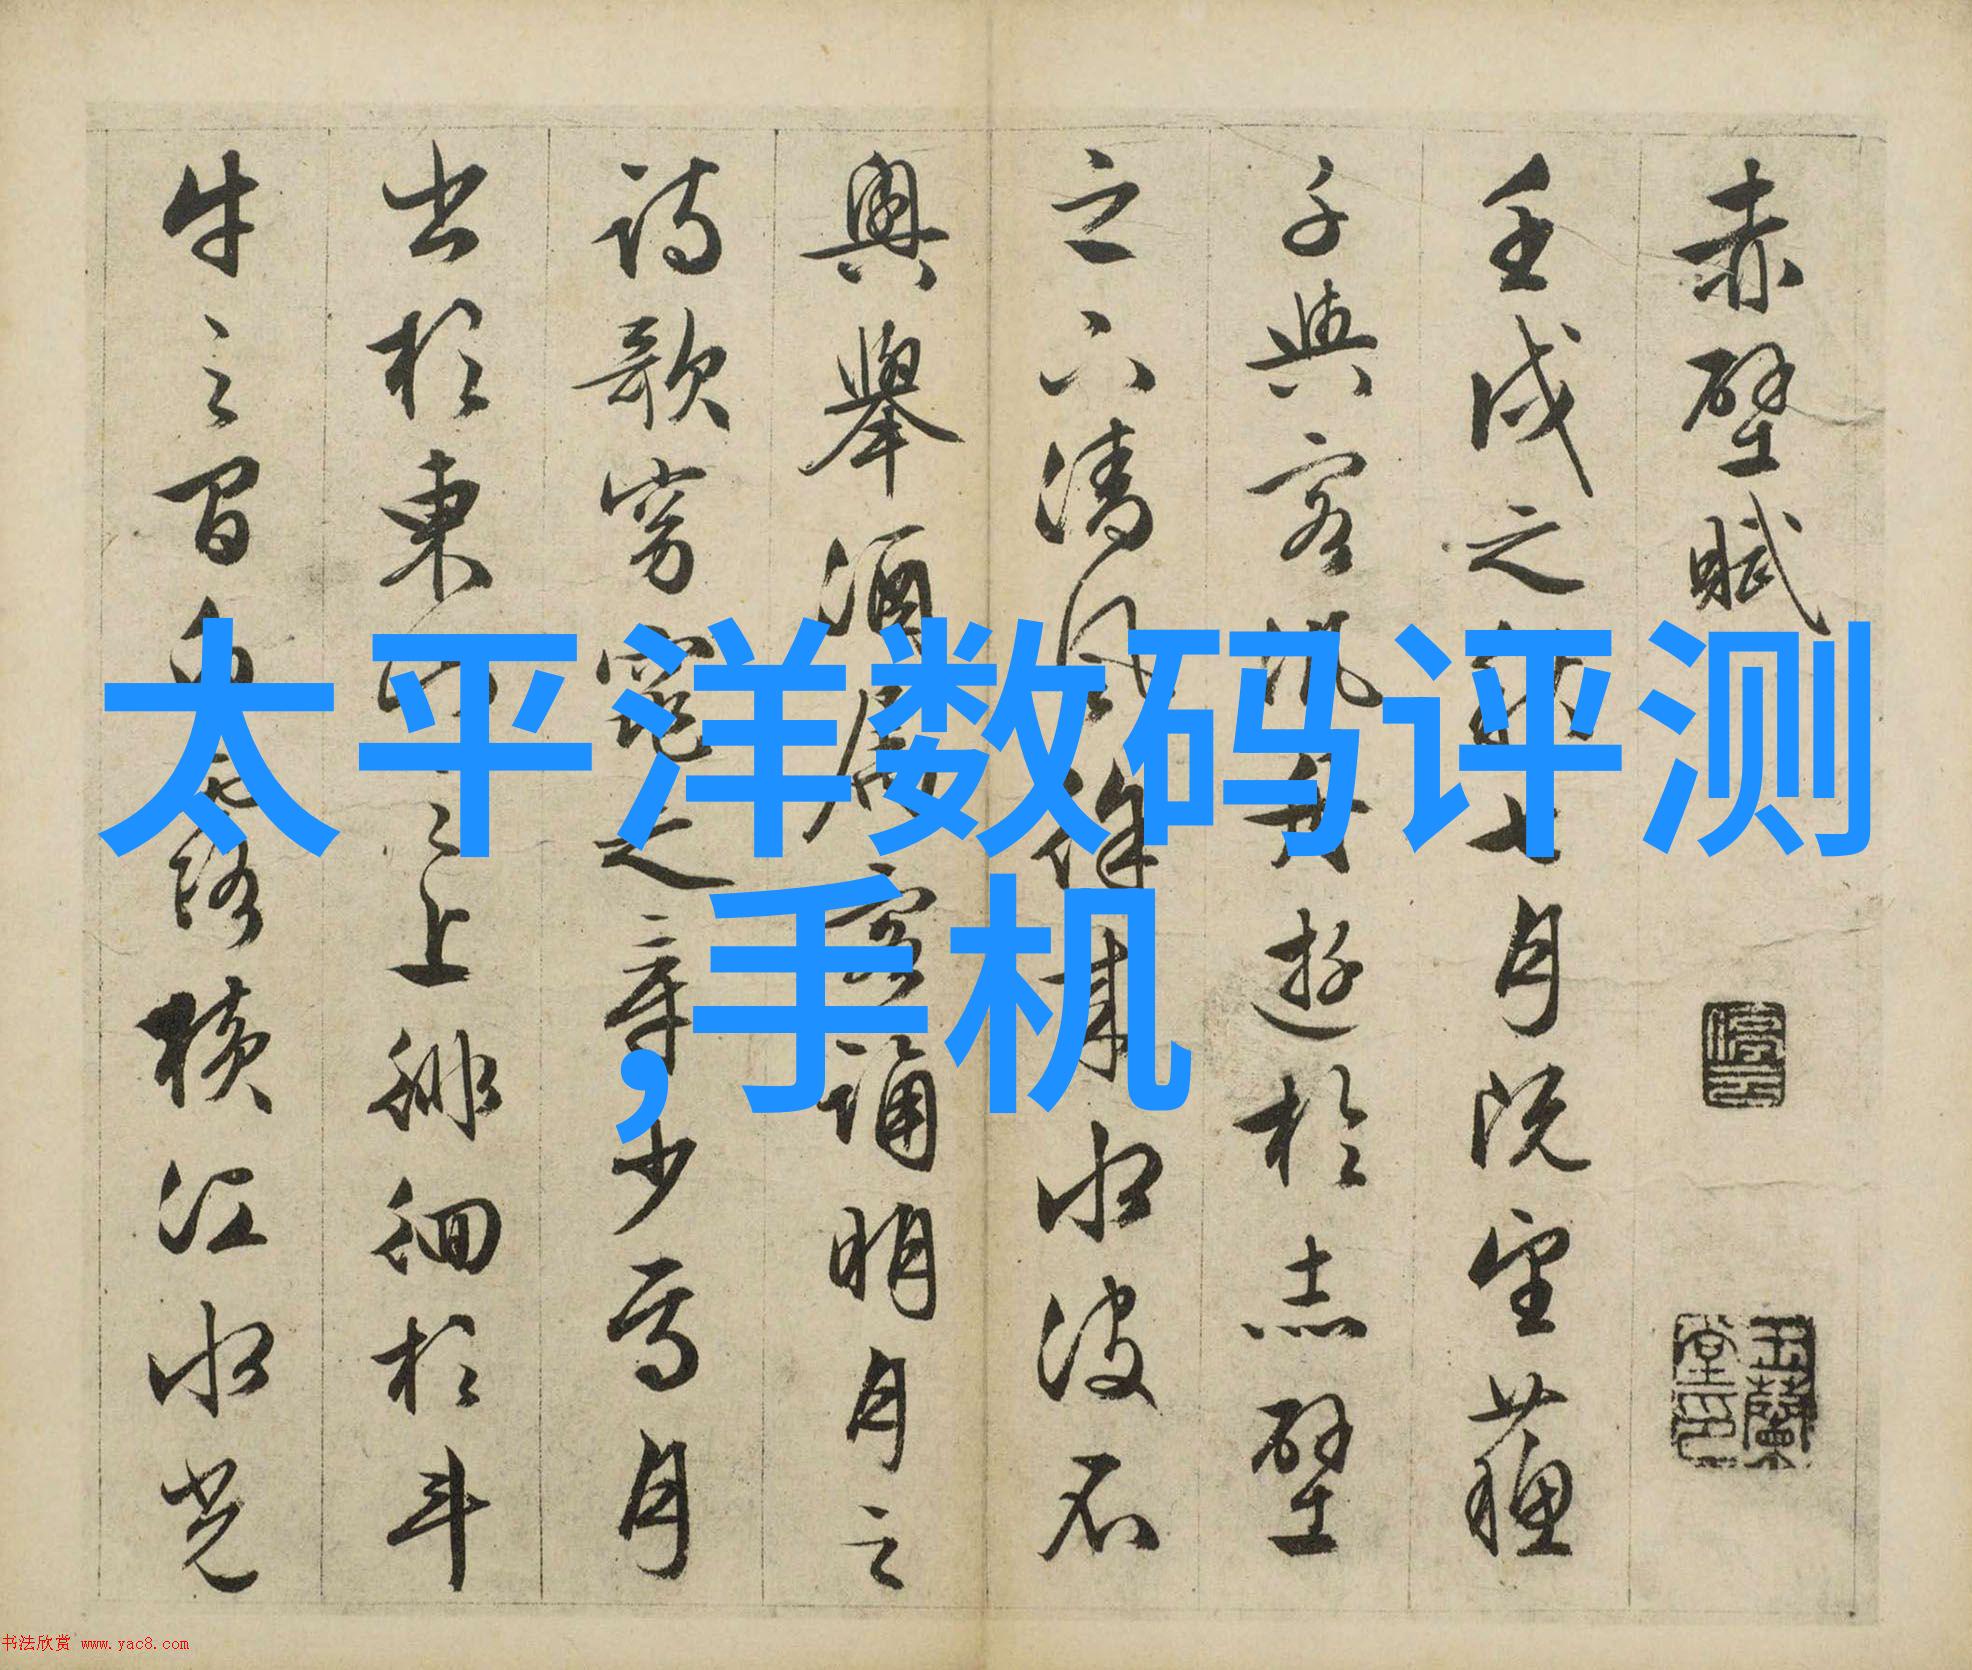 太平洋数码评测
,手机
赤壁賦
壬戌之秋七月既望蘇
子與客汎舟遊於赤壁
之下清風徐來水波不
興舉酒屬客誦明月之
詩歌窈窕之章少焉月
出於東山之上徘徊於斗
牛之間白露橫江水光
玉蘭堂印
书法欣赏 www.yac8.com